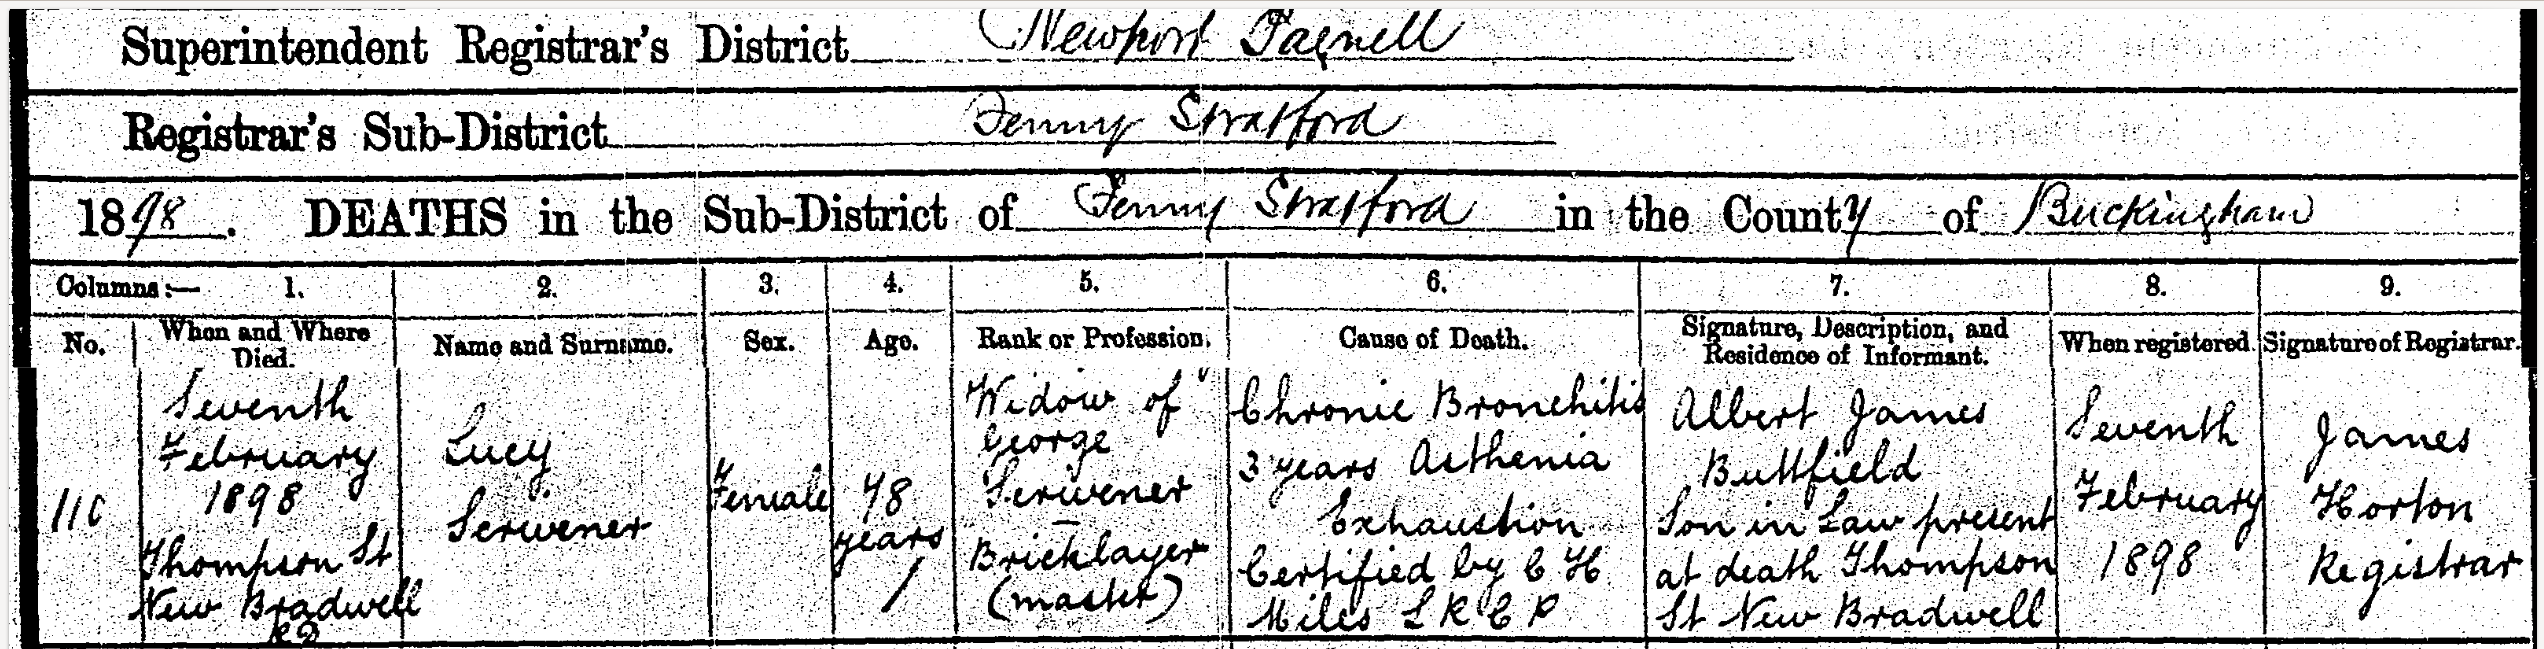 Superintendent Registrar's District Newport Pagnell
Registrar's Sub-District Fenny Stratford
1898. DEATHS in the Sub-District of Fenny Stratford in the County of Buckingham
Columns:— 1. 2. 3. 4. 5. 6. 7. 8. 9.
No. When and Where Died. Name and Surname. Sex. Age. Rank or Profession. Cause of Death. Signature, Description, and Residence of Informant. When registered. Signature of Registrar.
110
Seventh
February
1898
Thompson St
New Bradwell
RD
Lucy
Scrivener
Female
78
years
Widow of
George
Scrivener
Bricklayer
(master)
Chronic Bronchitis
3 years Asthenia
Exhaustion
Certified by C H
Miles L R C P
Albert James
Buttfield
Son in Law present
at death Thompson
St New Bradwell
Seventh
February
1898
James
Horton
Registrar